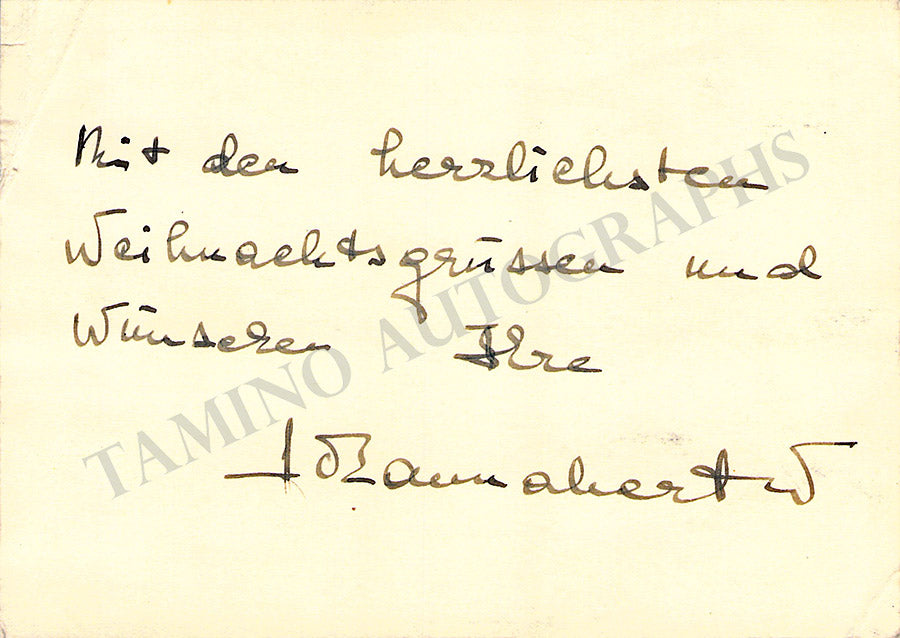 Mit den herzlichsten
Weihnachtsgrüssen und
Wünschen Ihre
TAMINO AUTOGRAPHS